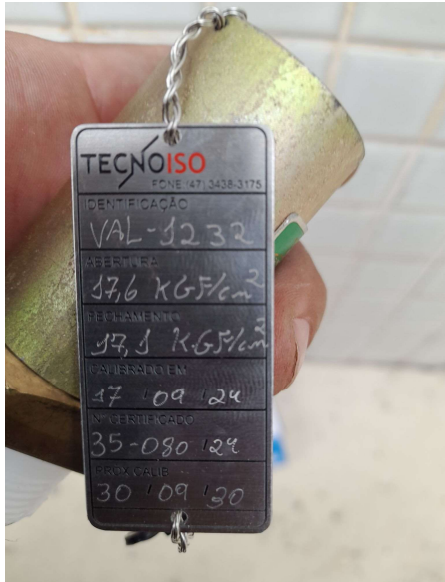 TECNOISO
FONE (47) 3438-3175
IDENTIFICAÇÃO
VAL-1232
ABERTURA
17,6 KGF/cm²
FECHAMENTO
17,1 KGF/cm²
CALIBRADO EM
17 / 09 / 24
Nº CERTIFICADO
35-080 / 24
PROX. CALIB.
30 / 09 / 30